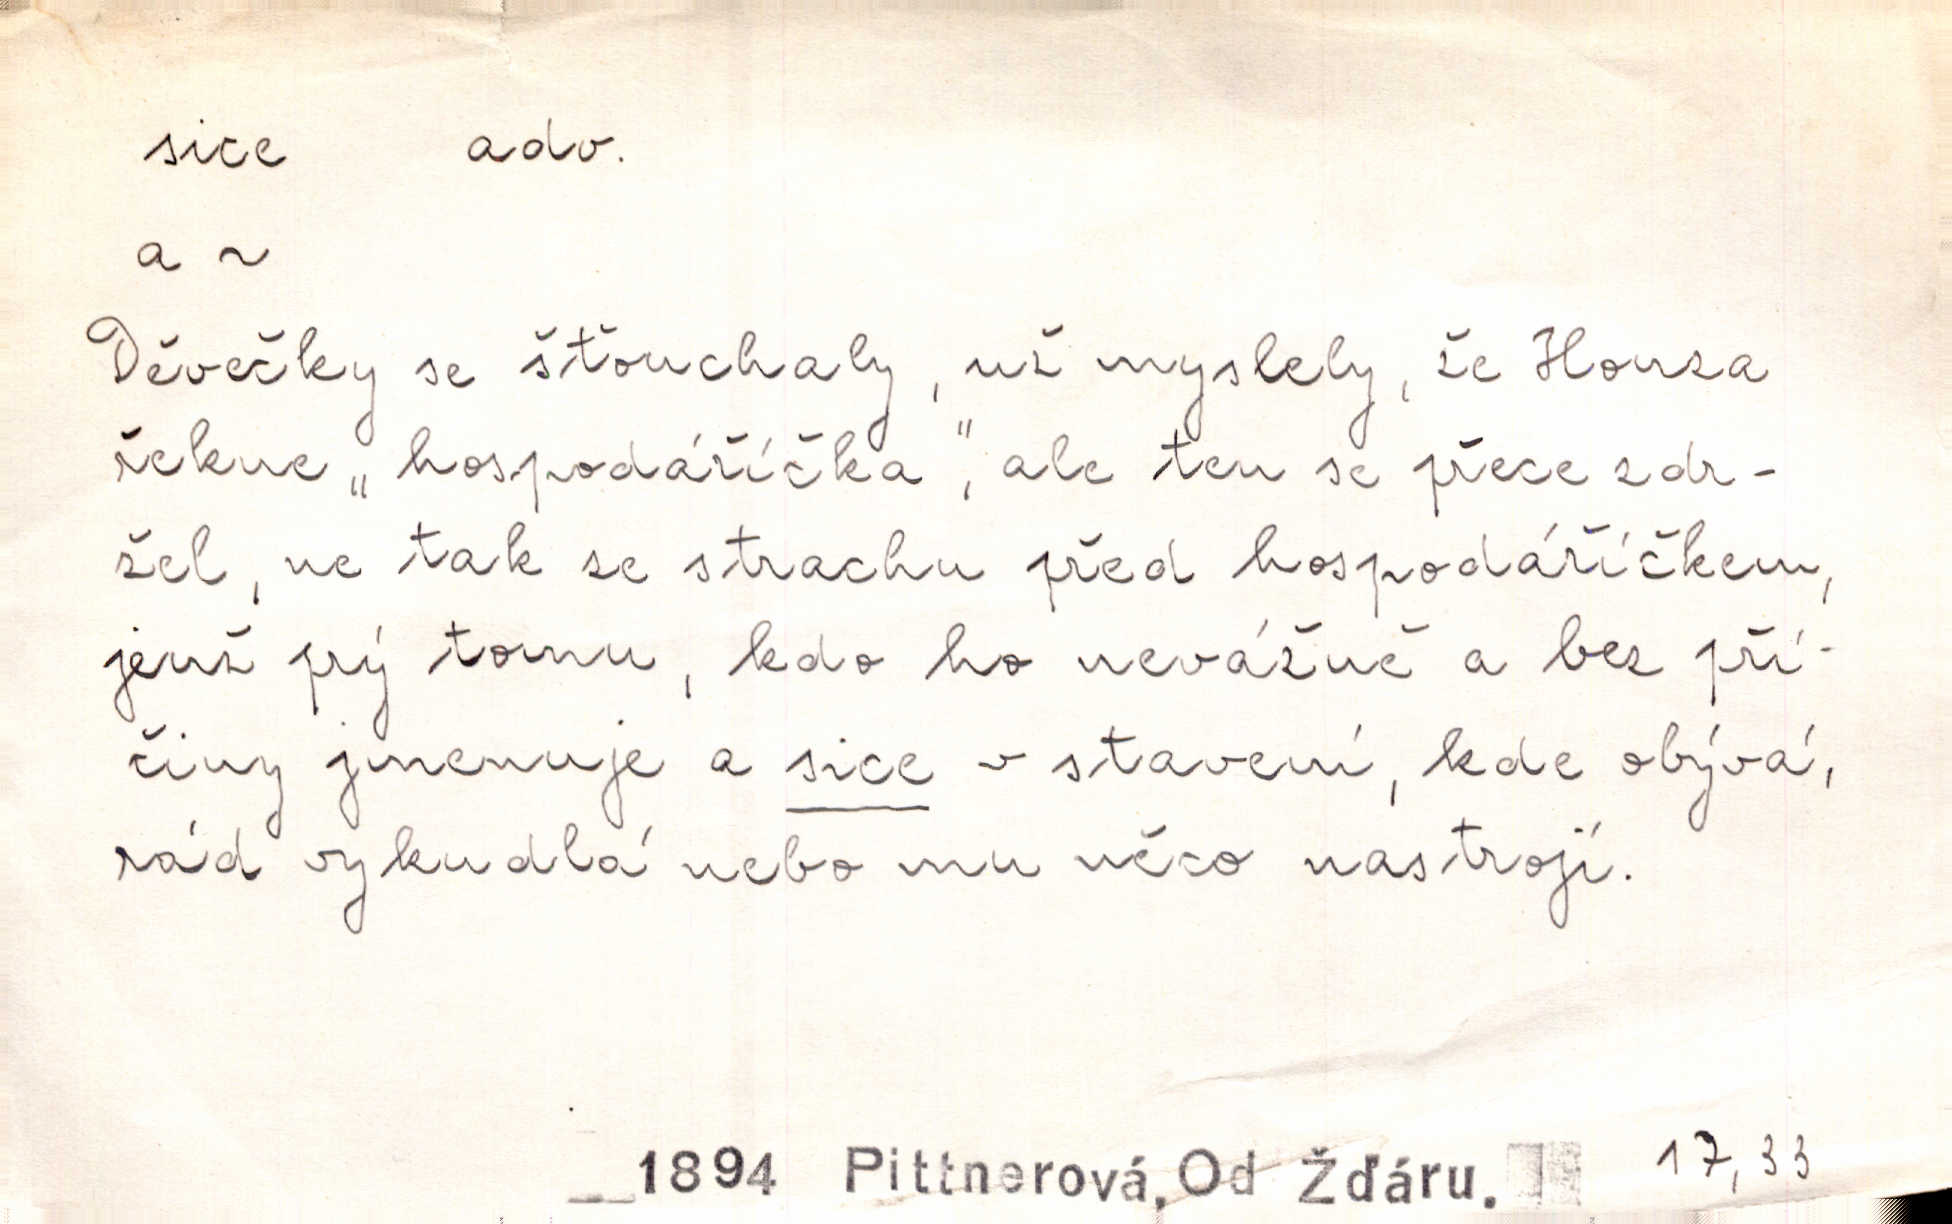 sice adv.
a ~
Děvečky se šťouchaly, už myslely, že Honza
řekne „hospodáříčka", ale ten se přece zdr-
žel, ne tak ze strachu před hospodáříčkem,
jenž prý tomu, kdo ho nevážně a bez pří-
činy jmenuje a sice v stavení, kde obývá,
rád vykudlá nebo mu něco nastrojí.
1894 Pittnerová, Od Žďáru. 17, 33